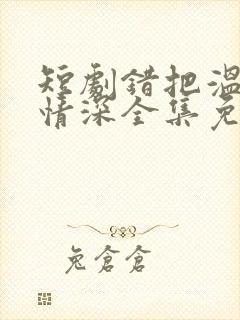 短劇錯把溫
情深全集免
兔倉倉